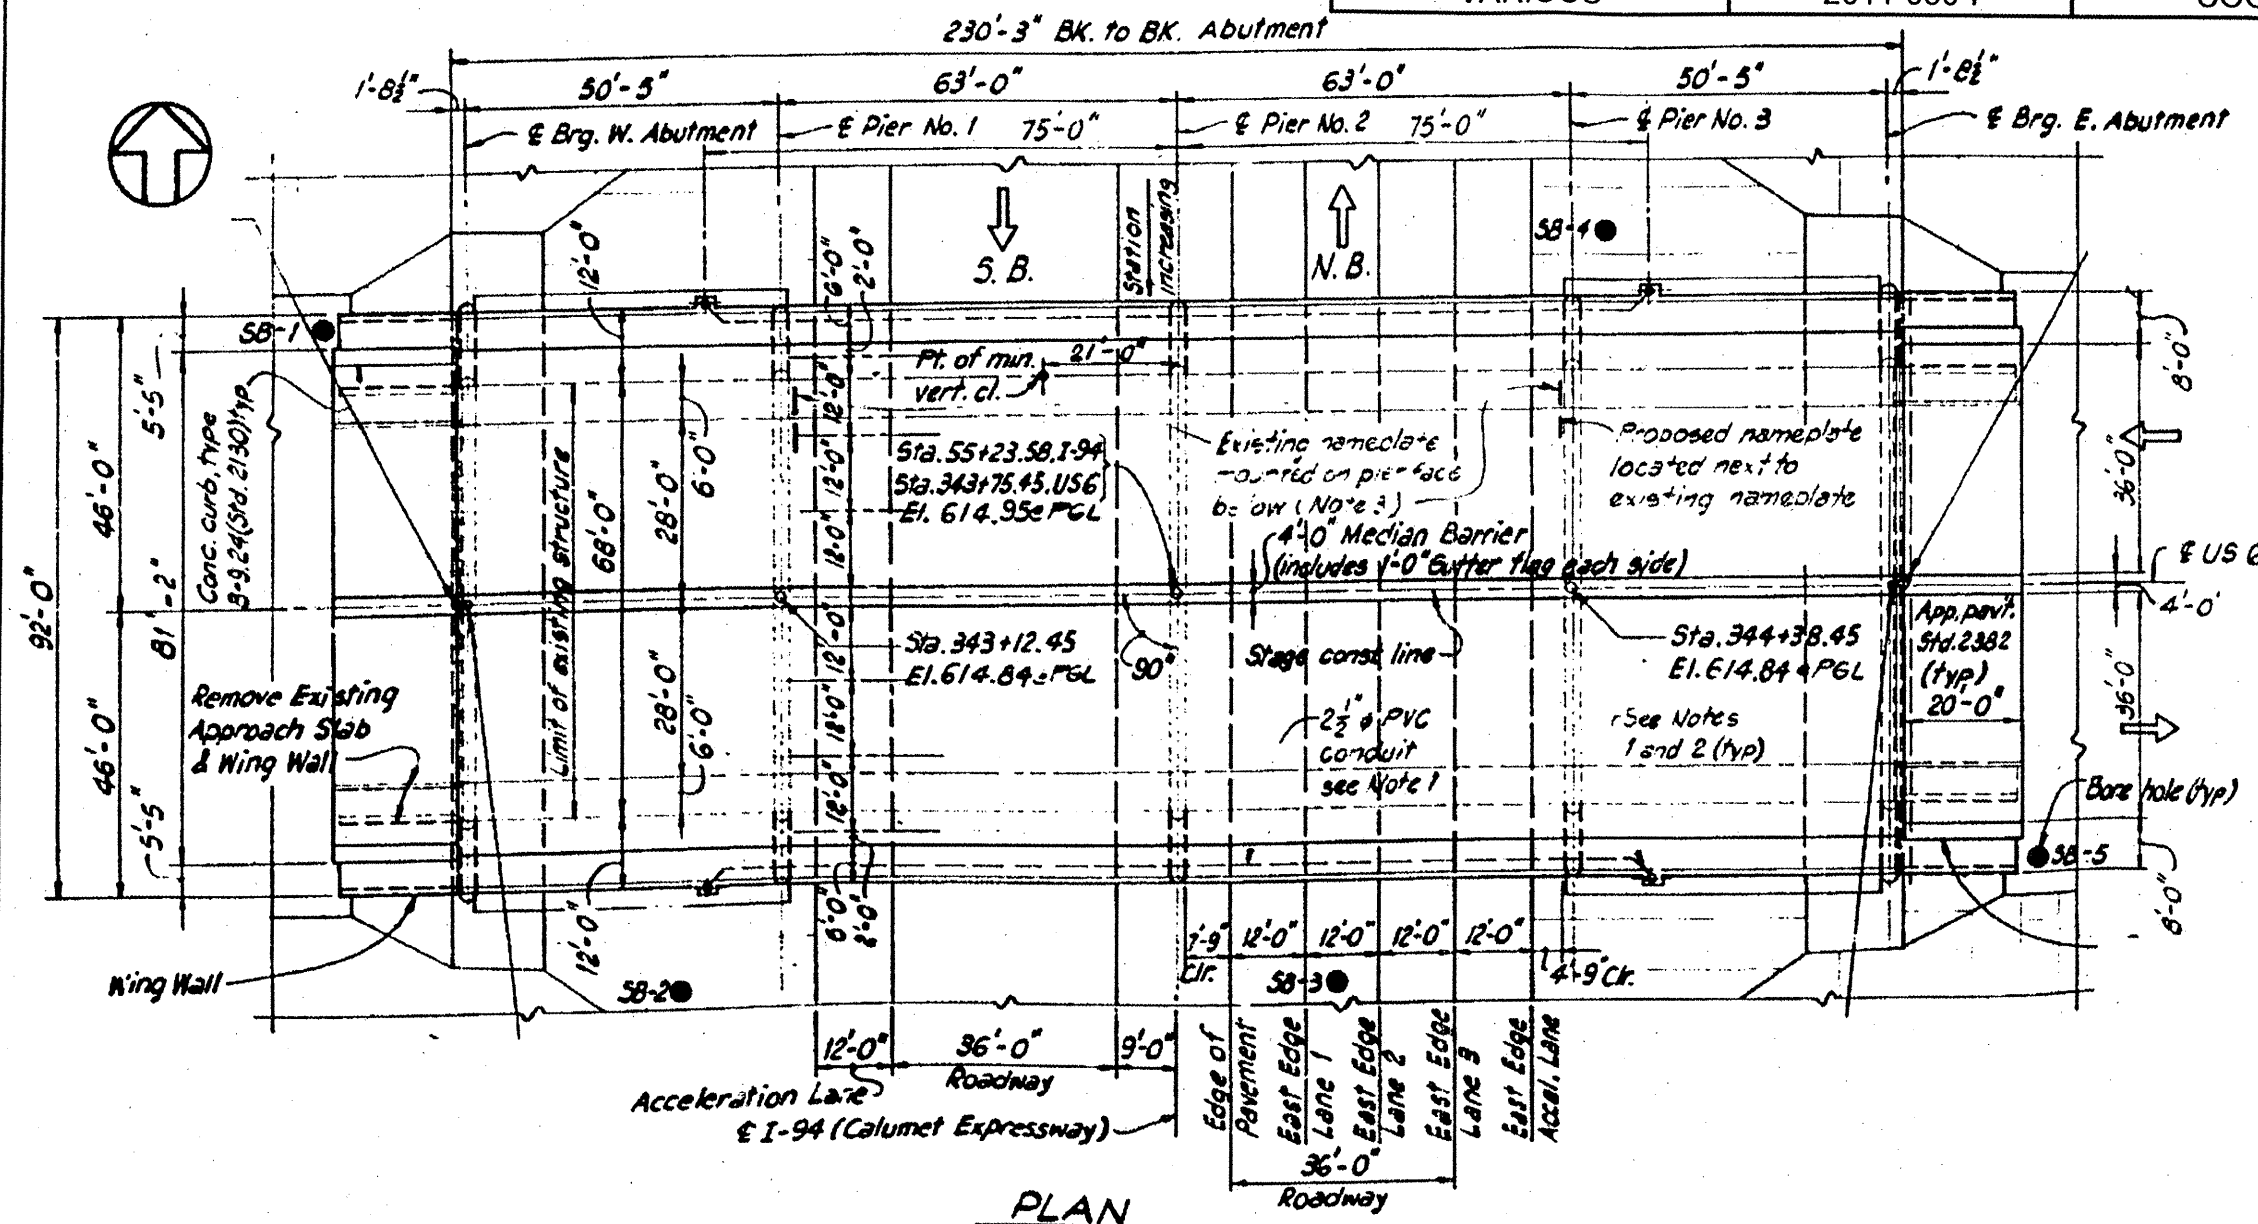 230'-3" BK. to BK. Abutment
1'-8½"
50'-5"
63'-0"
63'-0"
50'-5"
1'-8½"
℄ Brg. W. Abutment
℄ Pier No. 1
75'-0"
℄ Pier No. 2
75'-0"
℄ Pier No. 3
℄ Brg. E. Abutment
S.B.
N.B.
Station
Increasing
SB-4
12'-0"
6'-0"
2'-0"
SB-1
Pt. of min.
vert. cl.
21'-0"
8'-0"
5'-5"
Conc. curb, type
B-9.24 (Std. 2130) typ
46'-0"
92'-0"
81'-2"
46'-0"
5'-5"
Limit of existing structure
68'-0"
28'-0"
6'-0"
28'-0"
6'-0"
12'-0"
12'-0"
12'-0"
12'-0"
12'-0"
12'-0"
Sta. 55+23.58, I-94
Sta. 343+75.45, US6
El. 614.95 @ PGL
Existing nameplate
mounted on pier face
below (Note 3)
Proposed nameplate
located next to
existing nameplate
36'-0"
4'-0" Median Barrier
(includes 1'-0" Gutter flag each side)
℄ US 6
4'-0"
Sta. 343+12.45
El. 614.84 @ PGL
90°
Stage const. line
Sta. 344+38.45
El. 614.84 @ PGL
App. pav't.
Std. 2382
(typ)
20'-0"
36'-0"
Remove Existing
Approach Slab
& Wing Wall
2½" ø PVC
conduit
see Note 1
See Notes
1 and 2 (typ)
Bore hole (typ)
SB-5
8'-0"
Wing Wall
12'-0"
6'-0"
2'-0"
SB-2
7'-9"
Clr.
12'-0"
12'-0"
12'-0"
12'-0"
4'-9" Clr.
SB-3
12'-0"
36'-0"
Roadway
9'-0"
Acceleration Lane
℄ I-94 (Calumet Expressway)
Edge of
Pavement
East Edge
Lane 1
East Edge
Lane 2
East Edge
Lane 3
East Edge
Accel. Lane
36'-0"
Roadway
PLAN